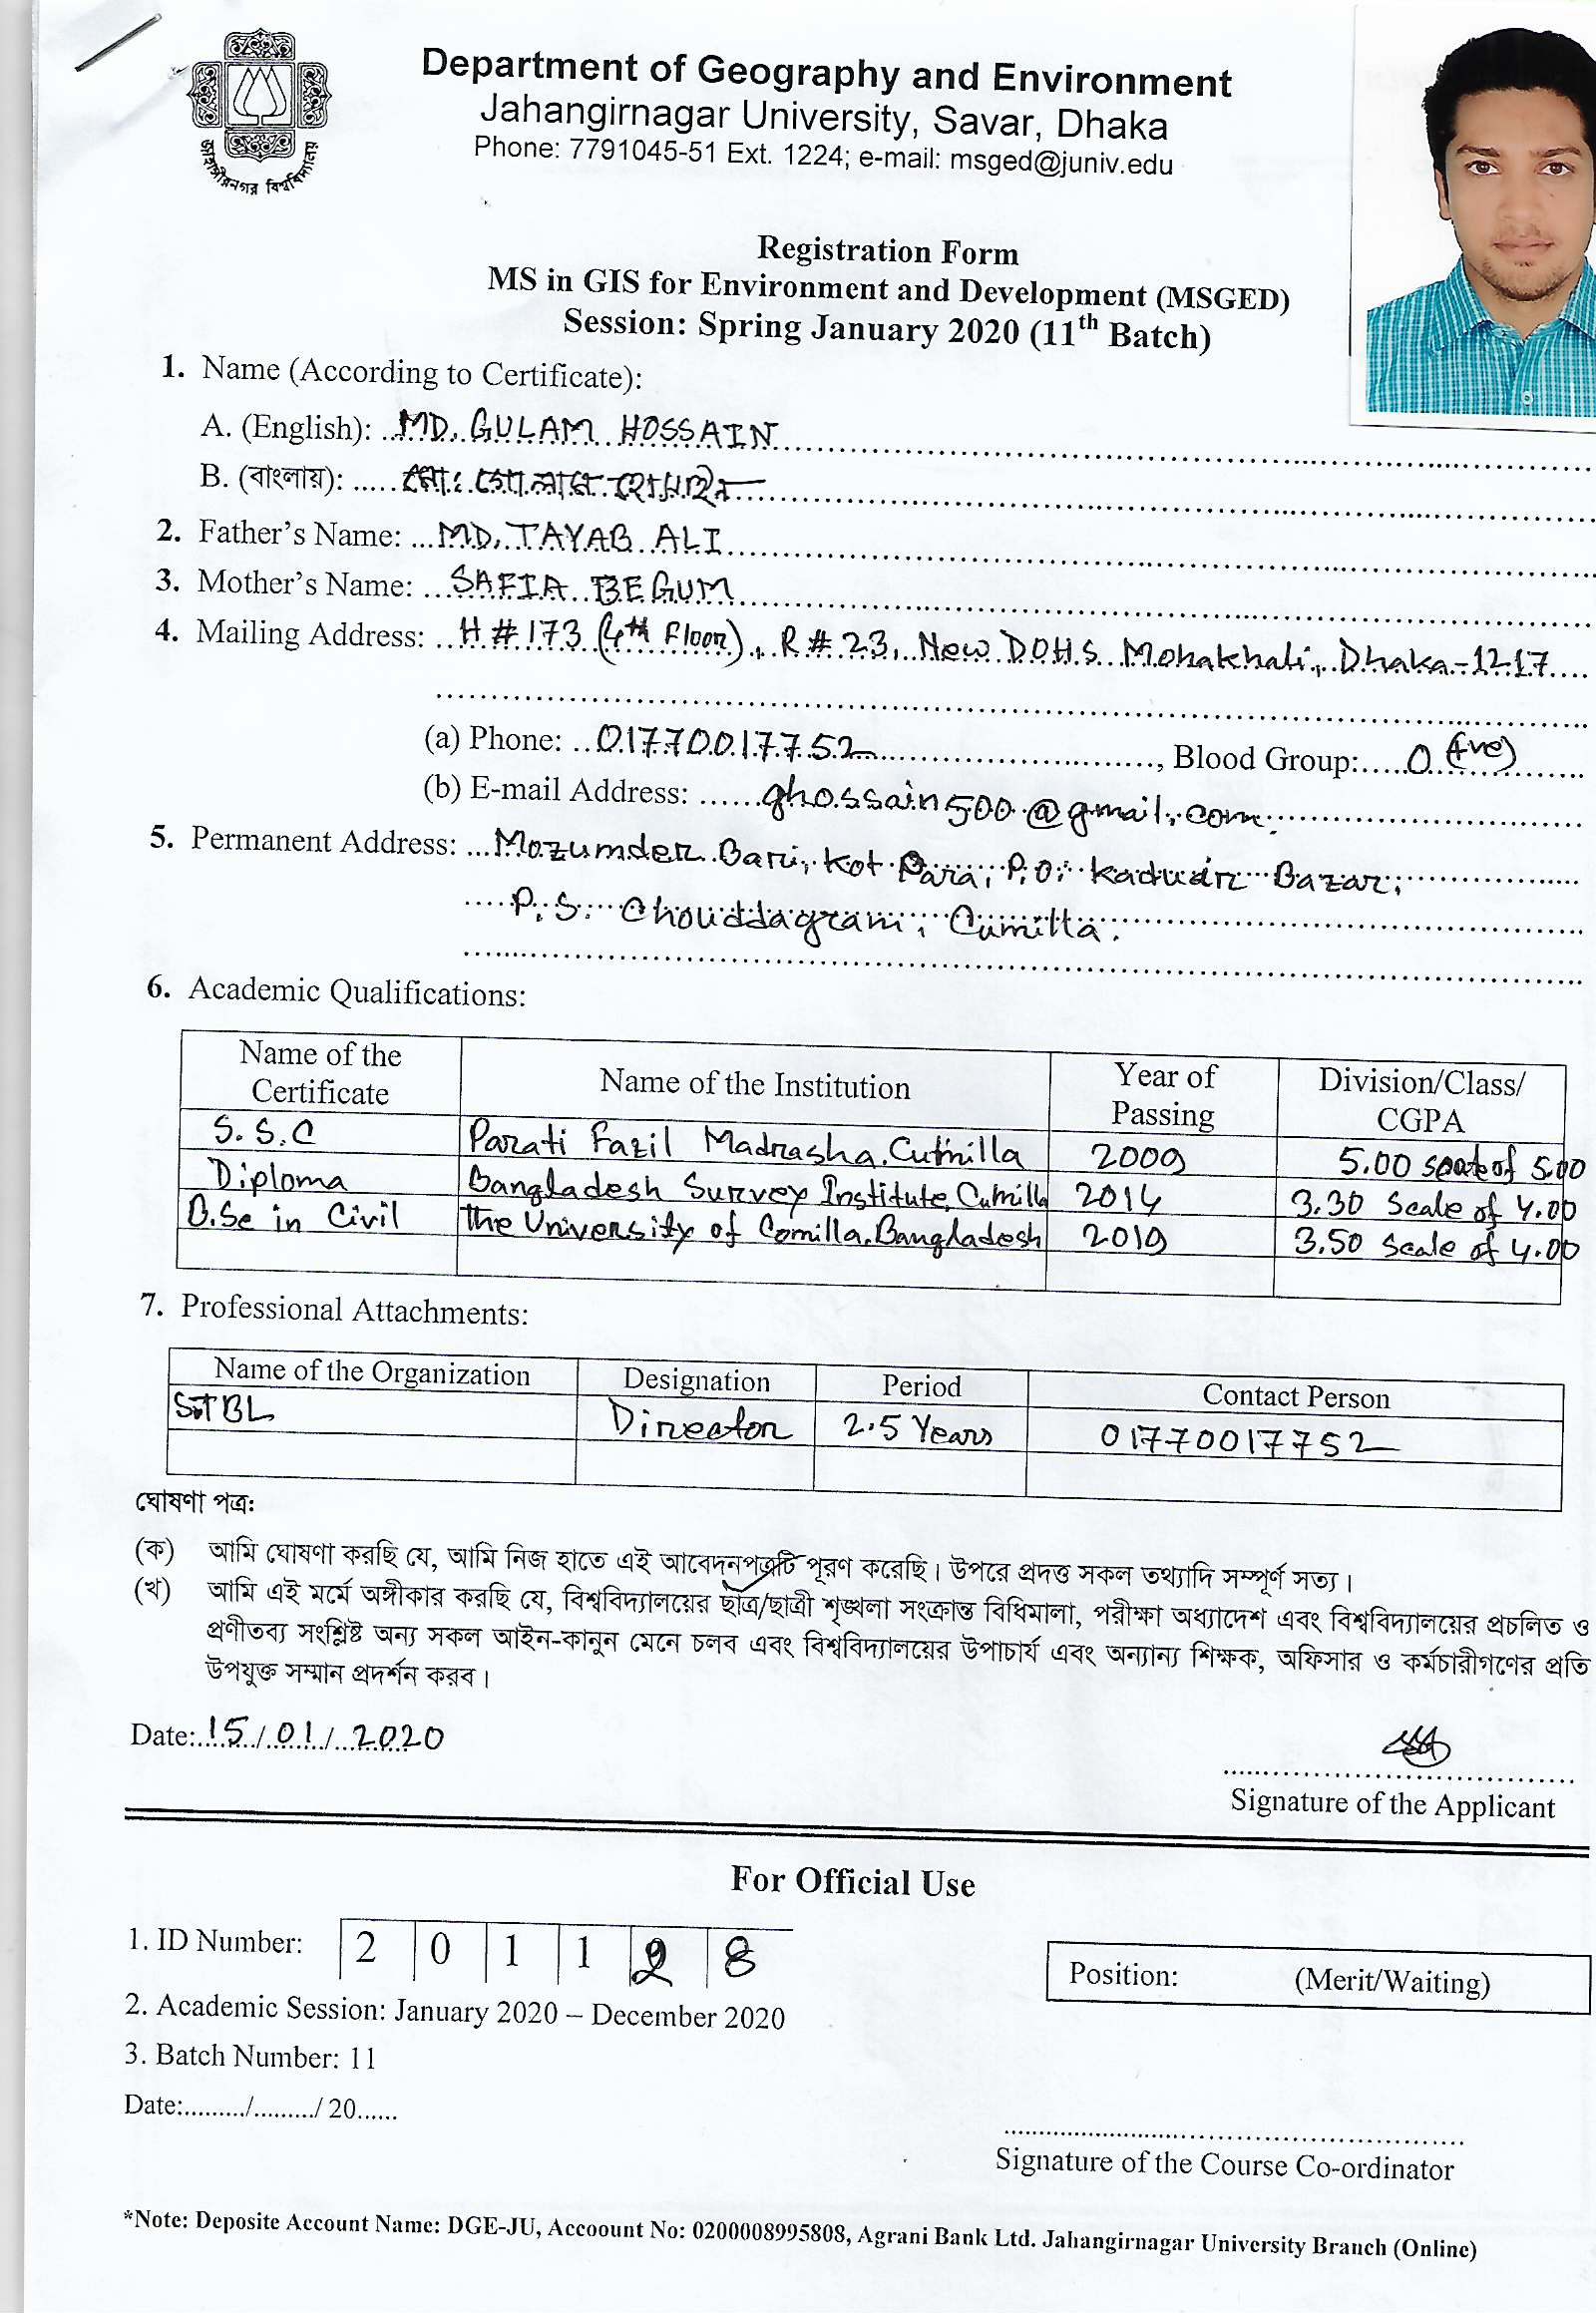 জাহাঙ্গীরনগর বিশ্ববিদ্যালয়
Department of Geography and Environment
Jahangirnagar University, Savar, Dhaka
Phone: 7791045-51 Ext. 1224; e-mail: msged@juniv.edu
Registration Form
MS in GIS for Environment and Development (MSGED)
Session: Spring January 2020 (11th Batch)
1. Name (According to Certificate):
A. (English): MD. GULAM HOSSAIN
B. (বাংলায়): মোঃ গোলাম হোসাইন
2. Father's Name: MD. TAYAB ALI
3. Mother's Name: SAFIA BEGUM
4. Mailing Address: H # 173 (4th Floor), R # 23, New DOHS Mohakhali, Dhaka-1217
(a) Phone: 01770017752, Blood Group: O (+ve)
(b) E-mail Address: ghossain500@gmail.com
5. Permanent Address: Mozumder Bari, Kot Para, P.O: Kaduair Bazar,
P.S: Chouddagram, Cumilla.
6. Academic Qualifications:
Name of the Certificate Name of the Institution Year of Passing Division/Class/ CGPA
S.S.C Parati Fazil Madrasha, Cumilla 2009 5.00 Scale of 5.00
Diploma Bangladesh Survey Institute, Cumilla 2014 3.30 Scale of 4.00
B.Sc in Civil The University of Comilla, Bangladesh 2019 3.50 Scale of 4.00
7. Professional Attachments:
Name of the Organization Designation Period Contact Person
STBL Director 2.5 Years 01770017752
ঘোষণা পত্র:
(ক) আমি ঘোষণা করছি যে, আমি নিজ হাতে এই আবেদনপত্রটি পূরণ করেছি। উপরে প্রদত্ত সকল তথ্যাদি সম্পূর্ণ সত্য।
(খ) আমি এই মর্মে অঙ্গীকার করছি যে, বিশ্ববিদ্যালয়ের ছাত্র/ছাত্রী শৃঙ্খলা সংক্রান্ত বিধিমালা, পরীক্ষা অধ্যাদেশ এবং বিশ্ববিদ্যালয়ের প্রচলিত ও
প্রণীতব্য সংশ্লিষ্ট অন্য সকল আইন-কানুন মেনে চলব এবং বিশ্ববিদ্যালয়ের উপাচার্য এবং অন্যান্য শিক্ষক, অফিসার ও কর্মচারীগণের প্রতি
উপযুক্ত সম্মান প্রদর্শন করব।
Date: 15/01/2020
Signature of the Applicant
For Official Use
1. ID Number: 2 0 1 1 2 8
Position: (Merit/Waiting)
2. Academic Session: January 2020 – December 2020
3. Batch Number: 11
Date:........./........./ 20......
Signature of the Course Co-ordinator
*Note: Deposite Account Name: DGE-JU, Accoount No: 0200008995808, Agrani Bank Ltd. Jahangirnagar University Branch (Online)